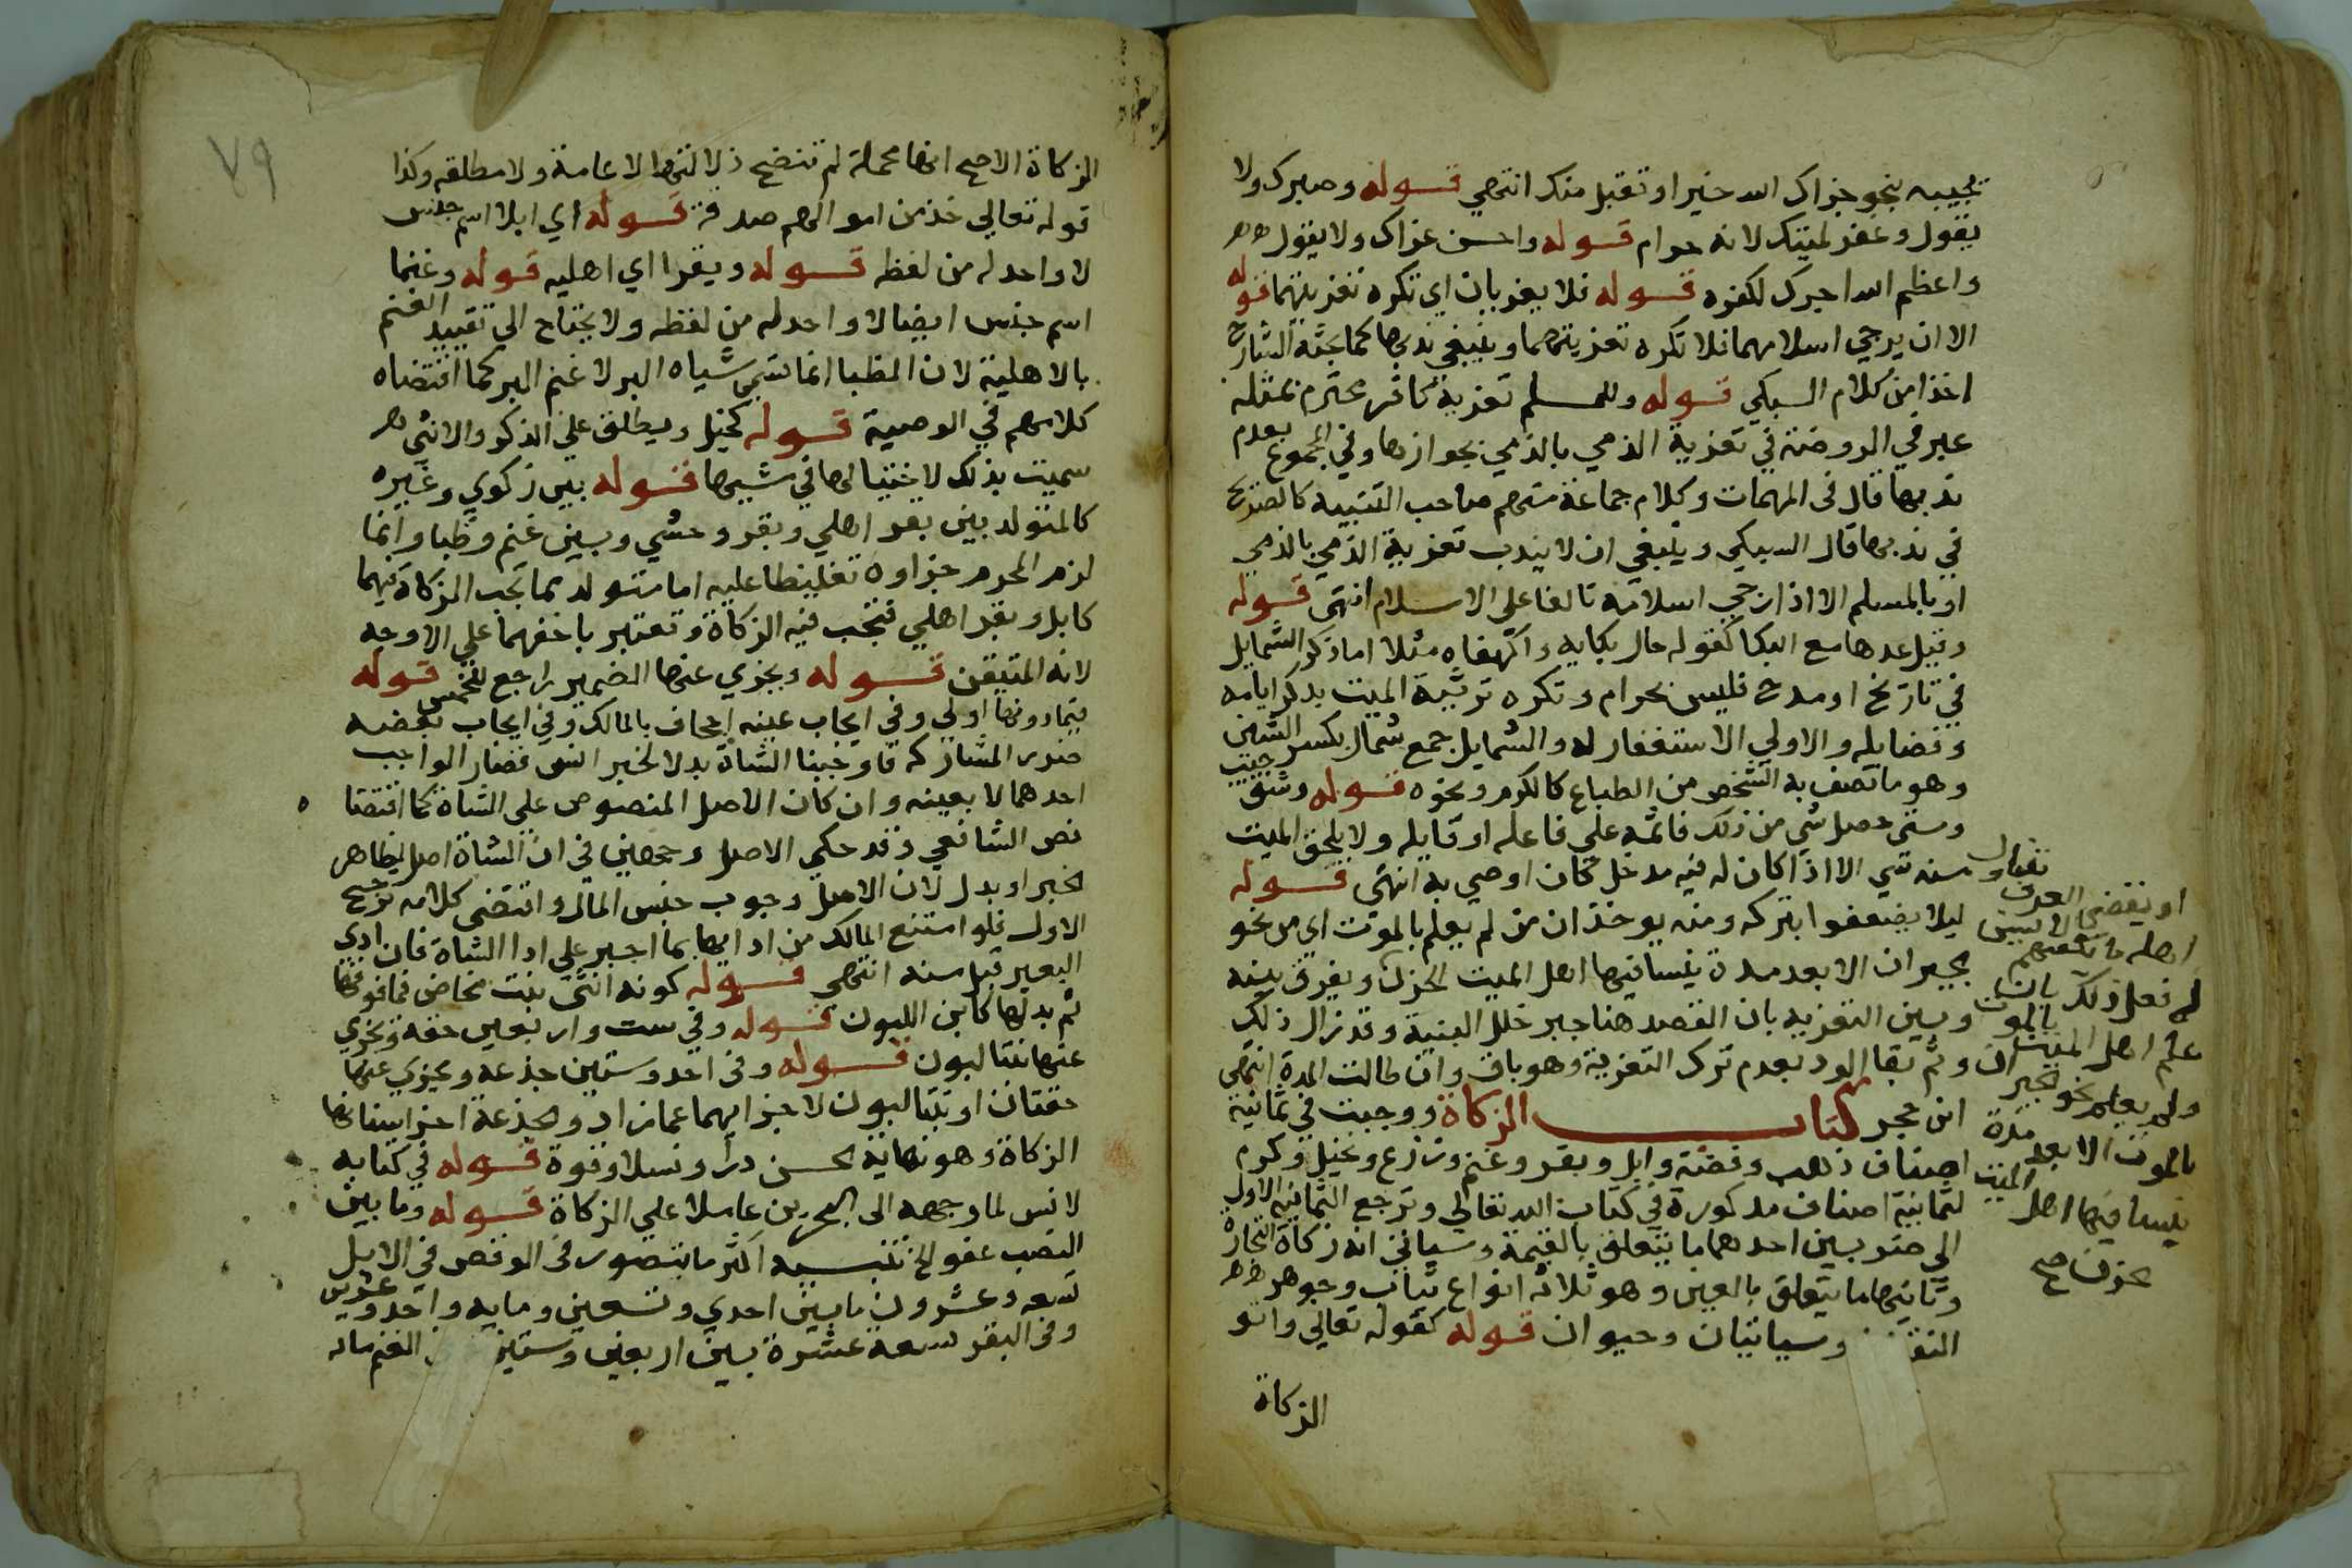 يجيبه بنحو جزاك الله خيرا او تقبل منك انتهي قوله وصبرك ولا
يقول وغفر لميتك لانه حرام قوله واحسن عزاك ولا يقول
واعظم الله اجرك لكفره قوله فلا يعزيان اي تكره تعزيتهما قوله
الا ان يرجي اسلامهما فلا تكره تعزيتهما وينبغي ندبها كما بحثه الشارح
اخذا من كلام السبكي قوله وللمسلم تعزية كافر محترم بمثله
عبر في الروضة في تعزية الذمي بالذمي بجوازها وفي المجموع بعدم
ندبها قال في المهمات وكلام جماعة منهم صاحب التنبيه كالصريح
في ندبها قال السبكي وينبغي ان لا يندب تعزية الذمي بالذمي
او بالمسلم الا اذا رجي اسلامه تالفا علي الاسلام انتهي قوله
وقيل عدها مع البكا كقوله حال بكايه واكهفاه مثلا اما ذكر الشمايل
في تاريخ او مدح فليس بحرام وتكره ترثية الميت بذكر ايامه
وفضايله والاولي الاستغفار له والشمايل جمع شمال بكسر الشين
وهو ما تصف به الشخص من الطباع كالكرم ونحوه قوله وشق جيب
ومتي حصل شي من ذلك فاثمه علي فاعله او قايله ولا يلحق الميت
منه شي الا اذا كان له فيه مدخل كان اوصي به انتهي قوله
ليلا يضعفوا بتركه ومنه يوخذ ان من لم يعلم بالموت اي من نحو
الجيران الا بعد مدة ينسا فيها اهل الميت الحزن ويفرق بينه
وبين التعزيه بان القصد هنا جبر خلل البنية وقد زال ذلك
وثم بقا الود بعدم ترك التعزية وهو باق وان طالت المدة انتهي
ابن حجر كتاب الزكاة ووجبت في ثمانية
اصناف ذهب وفضة وابل وبقر وغنم وزرع ونخيل وكرم
لثمانية اصناف مذكورة في كتاب الله تعالي وترجع الثمانية الاول
الي ضربين احدهما ما يتعلق بالقيمة وسياتي انه زكاة التجارة
وثانيها ما يتعلق بالعين وهو ثلاثه انواع نبات وجوهر
وسياتيان وحيوان قوله كقوله تعالي واتو
الزكاة
او يقضي العرف
اهله
لهم فعل ذلك
علم اهل الميت بالموت
ولم يعلم نحو الجيران
بالموت الا بعد مدة
ينسا فيها اهل الميت
الحزن صح
٧٩
الزكاة الاصح انها مجملة لم تتضح دلالتها لا عامة ولا مطلقه وكذا
قوله تعالي خذ من اموالهم صدقة قوله اي ابلا اسم جنس
لا واحد له من لفظه قوله وبقرا اي اهليه قوله وغنما
اسم جنس ايضا لا واحد له من لفظه ولا يحتاج الي تقييد الغنم
بالاهلية لان الظبا انما تسمي شياه البر لا غنم البر كما اقتضاه
كلامهم في الوصية قوله كخيل ويطلق علي الذكر والانثي
سميت بذلك لاختيالها في مشيها قوله بين زكوي وغيره
كالمتولد بين بقر اهلي وبقر وحشي وبين غنم وظبا وانما
لزم المحرم جزاوه تغليظا عليه اما متولد مما تجب الزكاة فيهما
كابل وبقر اهلي فتجب فيه الزكاة وتعتبر باخفهما علي الاوجه
لانه المتيقن قوله ويجزي عنها الضمير راجع للخمس قوله
فيما دونها اولي وفي ايجاب عينه اجحاف بالمالك وفي ايجاب بعضه
ضرر المشاركه فاوجبنا الشاة بدلا لخبر انس فصار الواجب
احدهما لا بعينه وان كان الاصل المنصوص علي الشاة كما اقتضا
نص الشافعي وقد حكي الاصل وجهين في ان الشاة اصل لظاهر
الخبر او بدل لان الاصل وجوب جنس المال واقتضي كلامه ترجيح
الاول فلو امتنع المالك من ادايها بما اجبر علي ادا الشاة فان ادي
البعير قبل منه انتهي قوله كونه انثي بنت مخاض فما فوقها
ثم بدلها كابن اللبون قوله وفي ست واربعين حقة ويجزي
عنها بنتا لبون قوله وفي احد وستين جذعه ويجزي عنها
حقتان او بنتا لبون لاجزايهما عما زاد والجذعة اخر اسنانها
الزكاة وهو نهاية الحسن درا ونسلا وقوة قوله في كتابه
لانس لما وجهه الي البحرين عاملا علي الزكاة قوله وما بين
النصب عفو الخ تنبيه اكثر ما يتصور في الوقص في الابل
تسعه وعشرون ما بين احدي وتسعين ومايه واحد وعشرين
وفي البقر تسعة عشرة بين اربعين وستين الغنم مائه